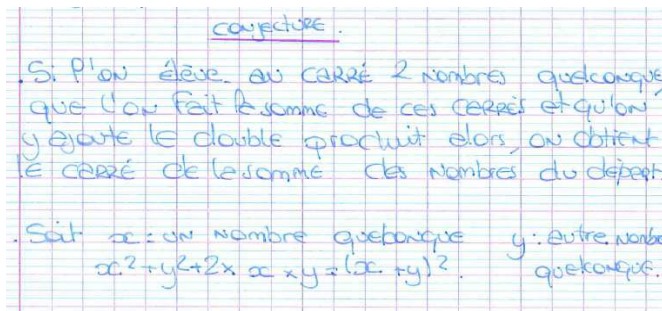 CONJECTURE.
. Si l'on élève au CARRÉ 2 nombres quelconque
que l'on fait la somme de ces CARRÉS et qu'on
y ajoute le double produit alors, on obtient
le CARRÉ de la somme des nombres du départ
. Soit x = un nombre quelconque y : autre nombre
x² + y² + 2 × x × y = (x + y)². quelconque.